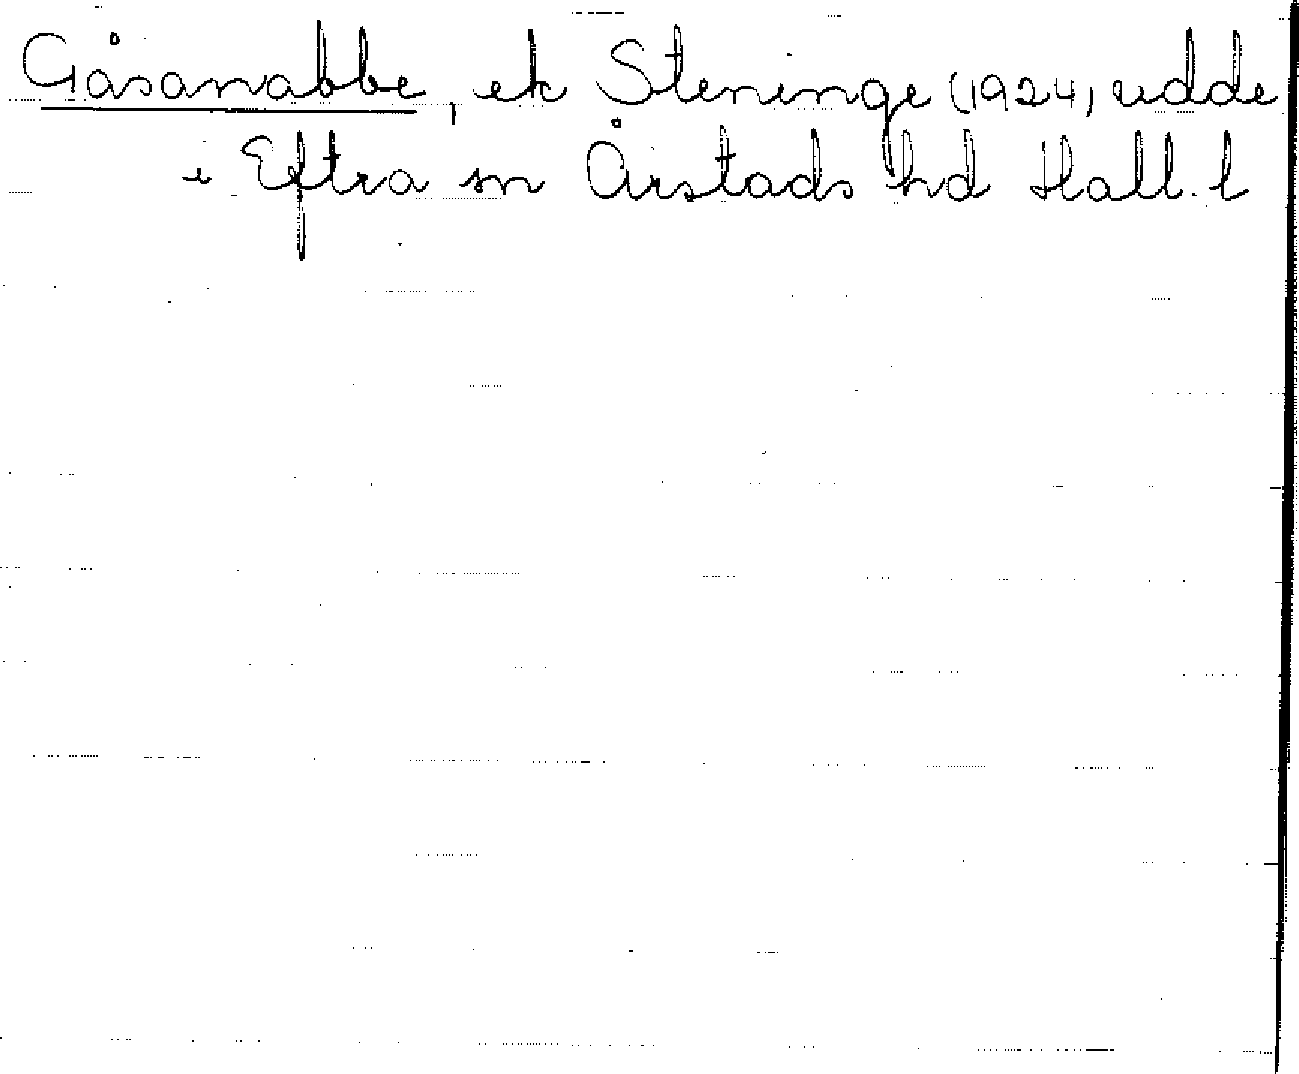 Gåsanabbe, ek Steninge (1924) udde
i Eftra sn Årstads hd Hall. l